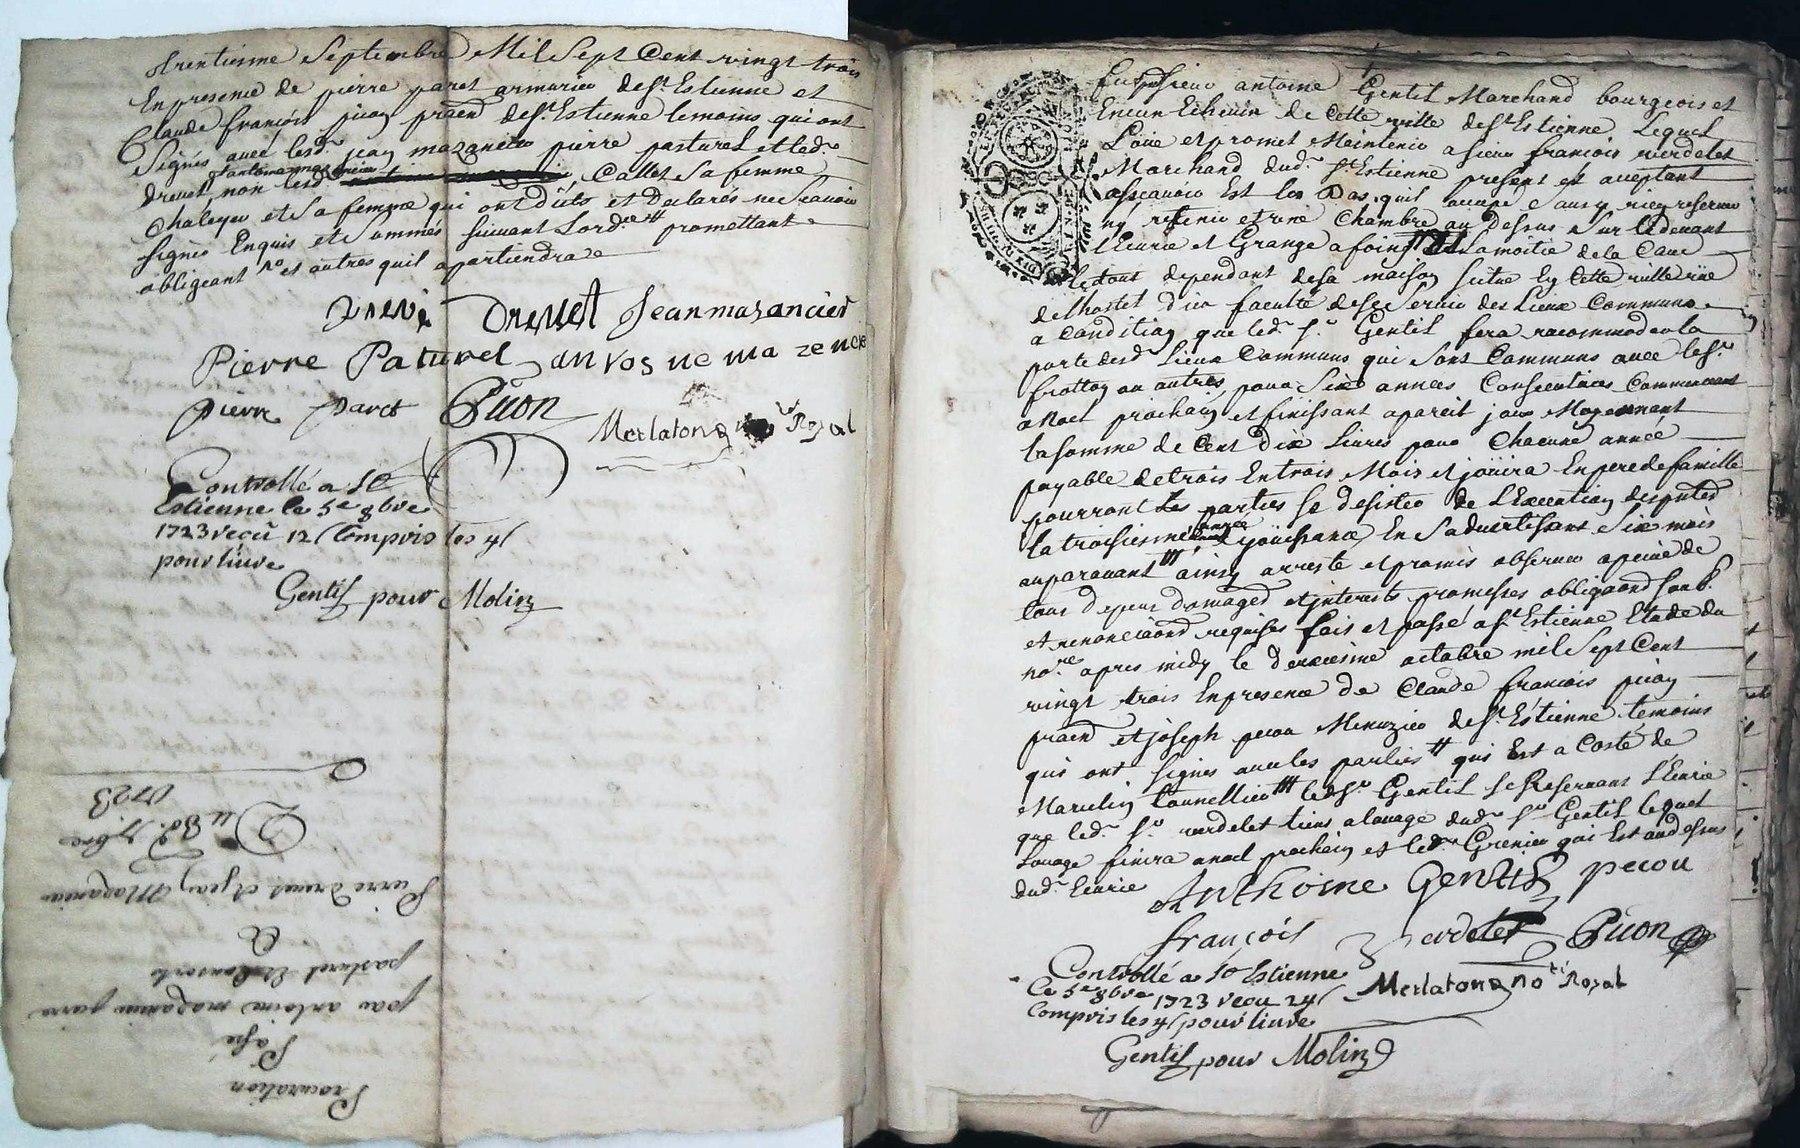 trentiesme Septembre Mil Sept Cent vingt trois
En presence de pierre paret armurier de st Estienne et
Claude françois picon pratn de st Estienne temoins qui ont
Signés avec lesd. jean mazancieu pierre pasturel et led.
drevet non lesd Callet Sa femme
Chaleyer et Sa femme qui ont dits et declarés ne Scavoir
Signer Enquis et Sommés suivant Lord.ce promettant
obligeant et autres quil apartiendra
Drevet Jean mazancier
Pierre Paturel anros ne ma zencie
pierre paret Picon Merlaton Royal
Controllé a St
Estienne le 5e 8bre
1723 recu 12 s Compris les 4 s
pour livre
Gentil pour Molin
Procuration
Passé
par antoine mazancieu pierre
pasturel Et Consorts
A
Pierre Drevet et jean Mazancieu
Du 30e 7bre
1723
fut psent Sieur antoine Gentil Marchand bourgeois et
Encien Echevin de Cette ville de st Estienne Lequel
Loue et promet Maintenir a sieur francois verdelet
Marchand dud. St Estienne present et aceptant
ascavoir Est les Bas quil occupe Sans y rien reserver
ny retenir et une Chambre au dessus Sur le devant
l'Ecurie et Grange a foing la moitié de la Cave
le tout dependant de sa maison situé En Cette ville rüe
de lhostel dieu faculté de se Servir des Lieux Communs
a Condition que led. sr. Gentil fera racommoder la
porte desd. Lieux Communs qui Sont Communs avec le sr.
frotton ou autres pour Six années Consecutives Commencant
a Noel prochain et finissant a pareil jour Moyennant
la somme de Cent dix livres pour Chacune année
payable de trois En trois Mois et joüira En pere de famille
pourront Les parties se desister de L'Execution des putes
la troisiesme année jouissance En Sadvertissant Six mois
auparavant ainsy arresté et promis observer a peine de
tous depens damages et interests promesses obligaons soub.
et renonciaons requises fait et passé a st Estienne Etude du
no.re apres midy le deuxiesme octobre mil Sept Cent
vingt trois En presence de Claude francois picon
pratn et joseph pecou Menuzier de st Estienne temoins
qui ont Signes avec les parties qui Est a Coste de
Marcelin tonnellier led sr. Gentil Se Reservant L'Ecurie
que led. sr. verdelet tient a louage dud. sr Gentil lequel
Louage finira a noel prochain et led. Grenier qui Est audessus
dud. Ecurie
Anthoine Gentil pecou
françois Verdelet Picon
Controllé a St Estienne
Ce 5e 8bre 1723 recu 24 s
Compris les 4 s pour livre
Merlaton no.re Royal
Gentil pour Molin